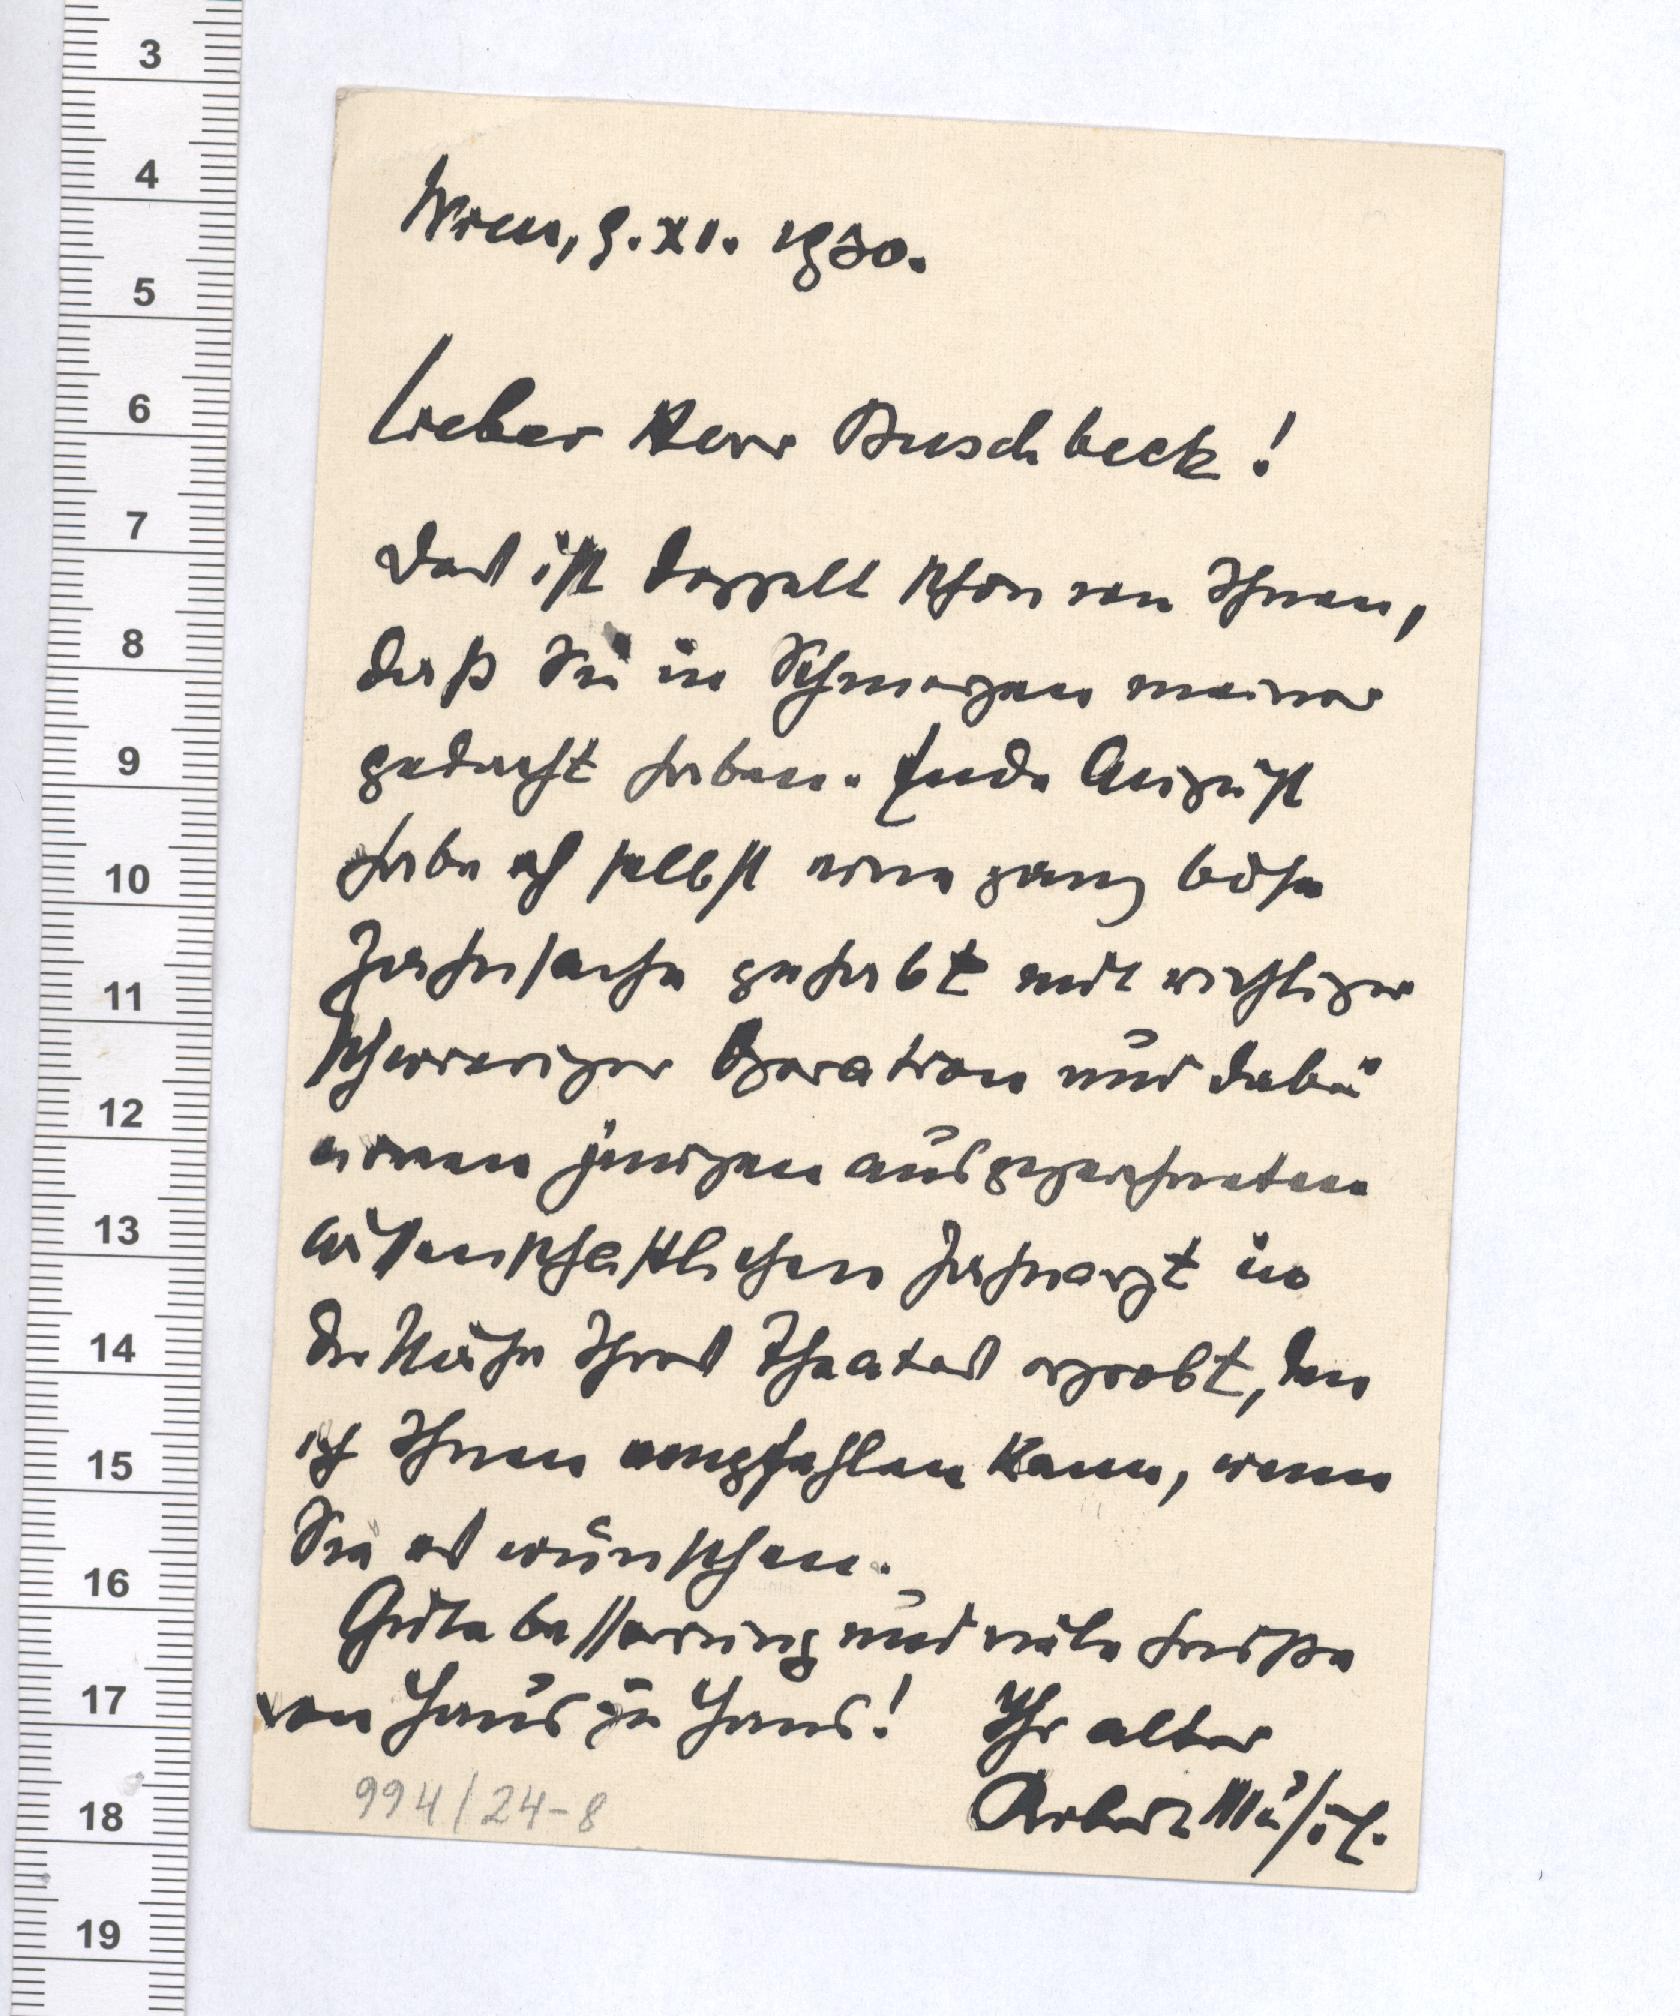 3
4
5
6
7
8
9
10
11
12
13
14
15
16
17
18
19
Wien, 9. XI. 1930.
Lieber Herr Buschbeck!
Das ist doppelt schön von Ihnen,
daß Sie in Schmerzen meiner
gedacht haben. Ende August
habe ich selbst eine ganz böse
Zahnsache gehabt mit richtiger
schwieriger Operation und dabei
einen jungen ausgezeichneten
wissenschaftlichen Zahnarzt in
der Nähe Ihres Theaters erprobt, den
ich Ihnen empfehlen kann, wenn
Sie es wünschen.
Gute Besserung und viele Grüße
von Haus zu Haus! Ihr alter
Robert Musil.
994/24-8